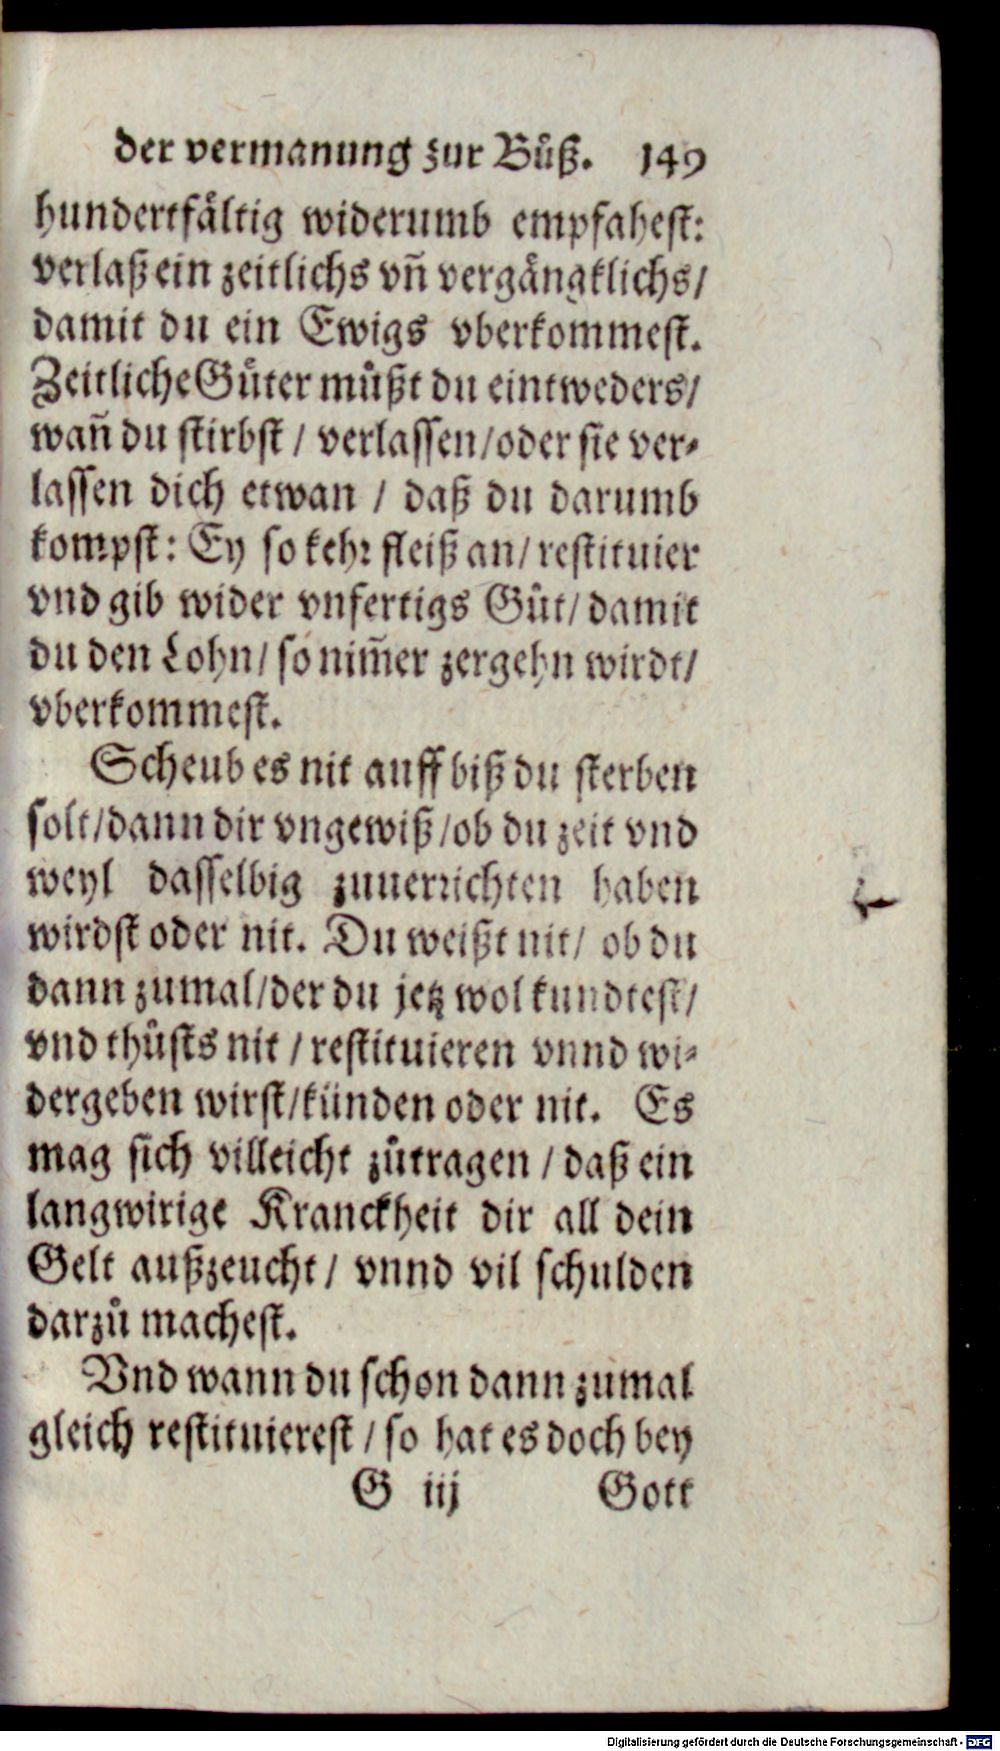 der vermanung zur Bůß. 149
hundertfältig widerumb empfahest:
verlaß ein zeitlichs vñ vergängklichs/
damit du ein Ewigs vberkommest.
Zeitliche Güter můßt du eintweders/
wañ du stirbst / verlassen/oder sie ver⸗
lassen dich etwan / daß du darumb
kompst: Ey so kehꝛ fleiß an/ restituier
vnd gib wider vnfertigs Gůt/ damit
du den Lohn/ so nim̃er zergehn wirdt/
vberkommest.
Scheub es nit auff biß du sterben
solt/dann dir vngewiß/ob du zeit vnd
weyl dasselbig zuuerꝛichten haben
wirdst oder nit. Du weißt nit/ ob du
dann zumal/der du jetz wol kundtest/
vnd thůsts nit / restituieren vnnd wi⸗
dergeben wirst/künden oder nit. Es
mag sich villeicht zůtragen / daß ein
langwirige Kranckheit dir all dein
Gelt außzeucht/ vnnd vil schulden
darzů machest.
Vnd wann du schon dann zumal
gleich restituierest / so hat es doch bey
G iij Gott
Digitalisierung gefördert durch die Deutsche Forschungsgemeinschaft - DFG